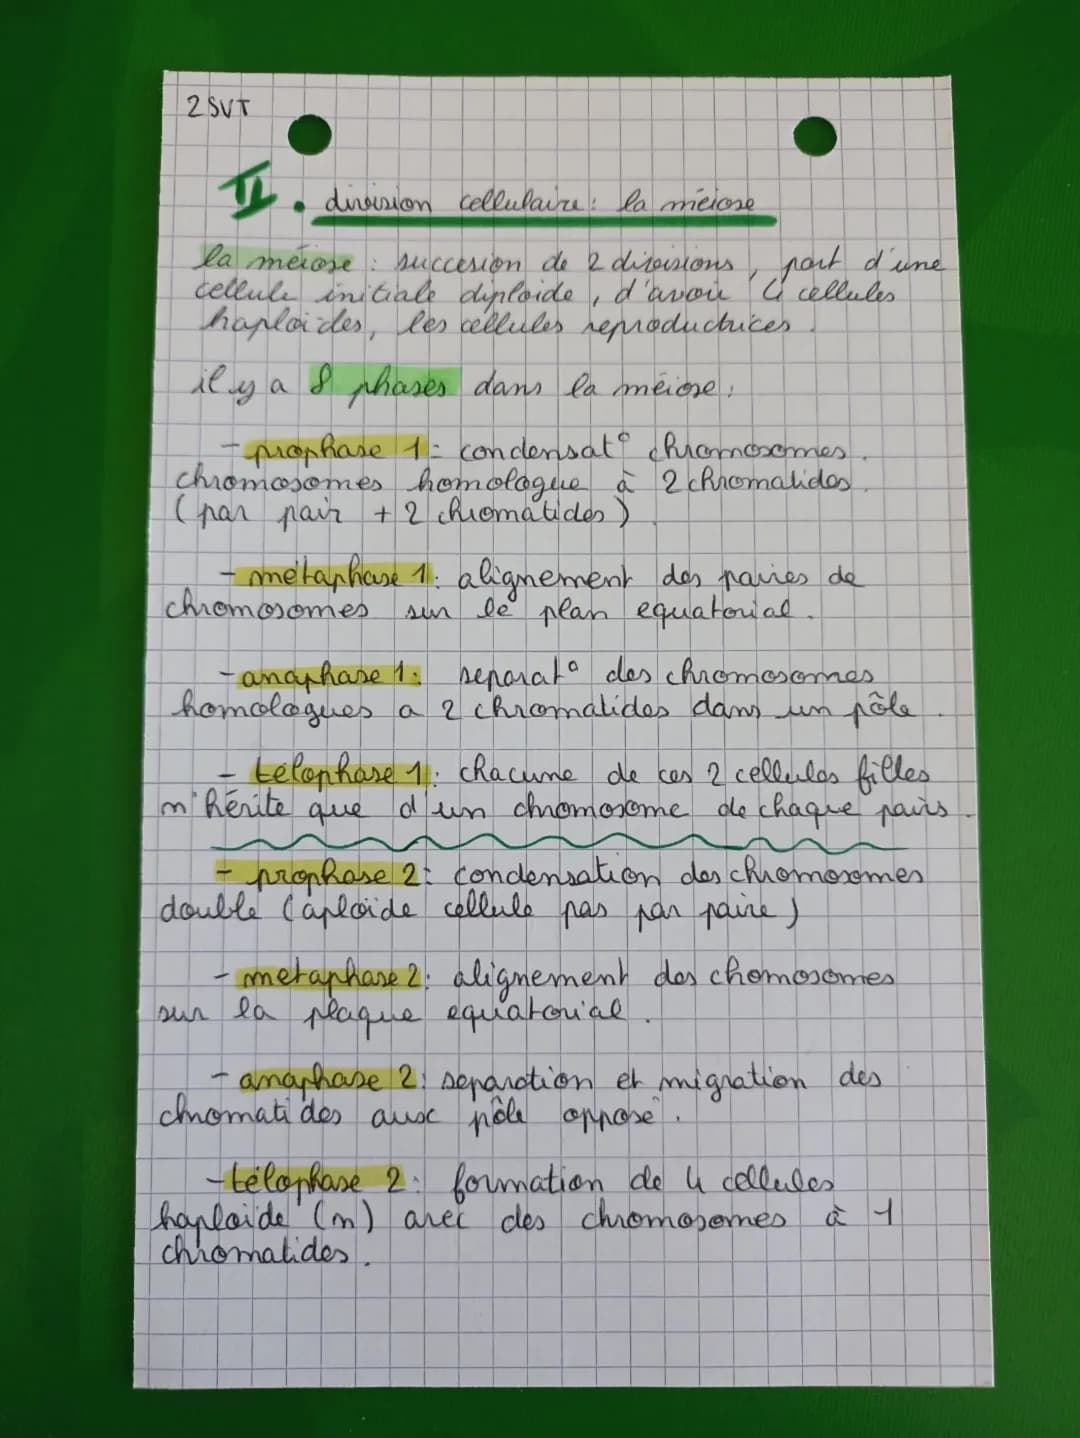 2 SVT
II. division cellulaire : la méiose
la méiose : succesion de 2 divisions, part d'une
cellule initiale diploïde, d'avoir 4 cellules
haploïdes, les cellules reproductrices.
il y a 8 phases dans la méiose :
- prophase 1 : condensat° chromosomes.
chromosomes homologue à 2 chromatides.
(par pair + 2 chromatides)
- métaphase 1 : alignement des paires de
chromosomes sur le plan equatorial.
- anaphase 1 : separat° des chromosomes
homologues a 2 chromatides dans un pôle.
- télophase 1 : chacune de ces 2 cellules filles
n'hérite que d'un chromosome de chaque pairs.
- prophase 2 : condensation des chromosomes
double (aploïde cellule pas par paire)
- metaphase 2 : alignement des chomosomes
sur la plaque equatorial.
- anaphase 2 : separation et migration des
chromatides aux pôle opposé.
- télophase 2 : formation de 4 cellules
haploïde (n) avec des chromosomes à 1
chromatides.